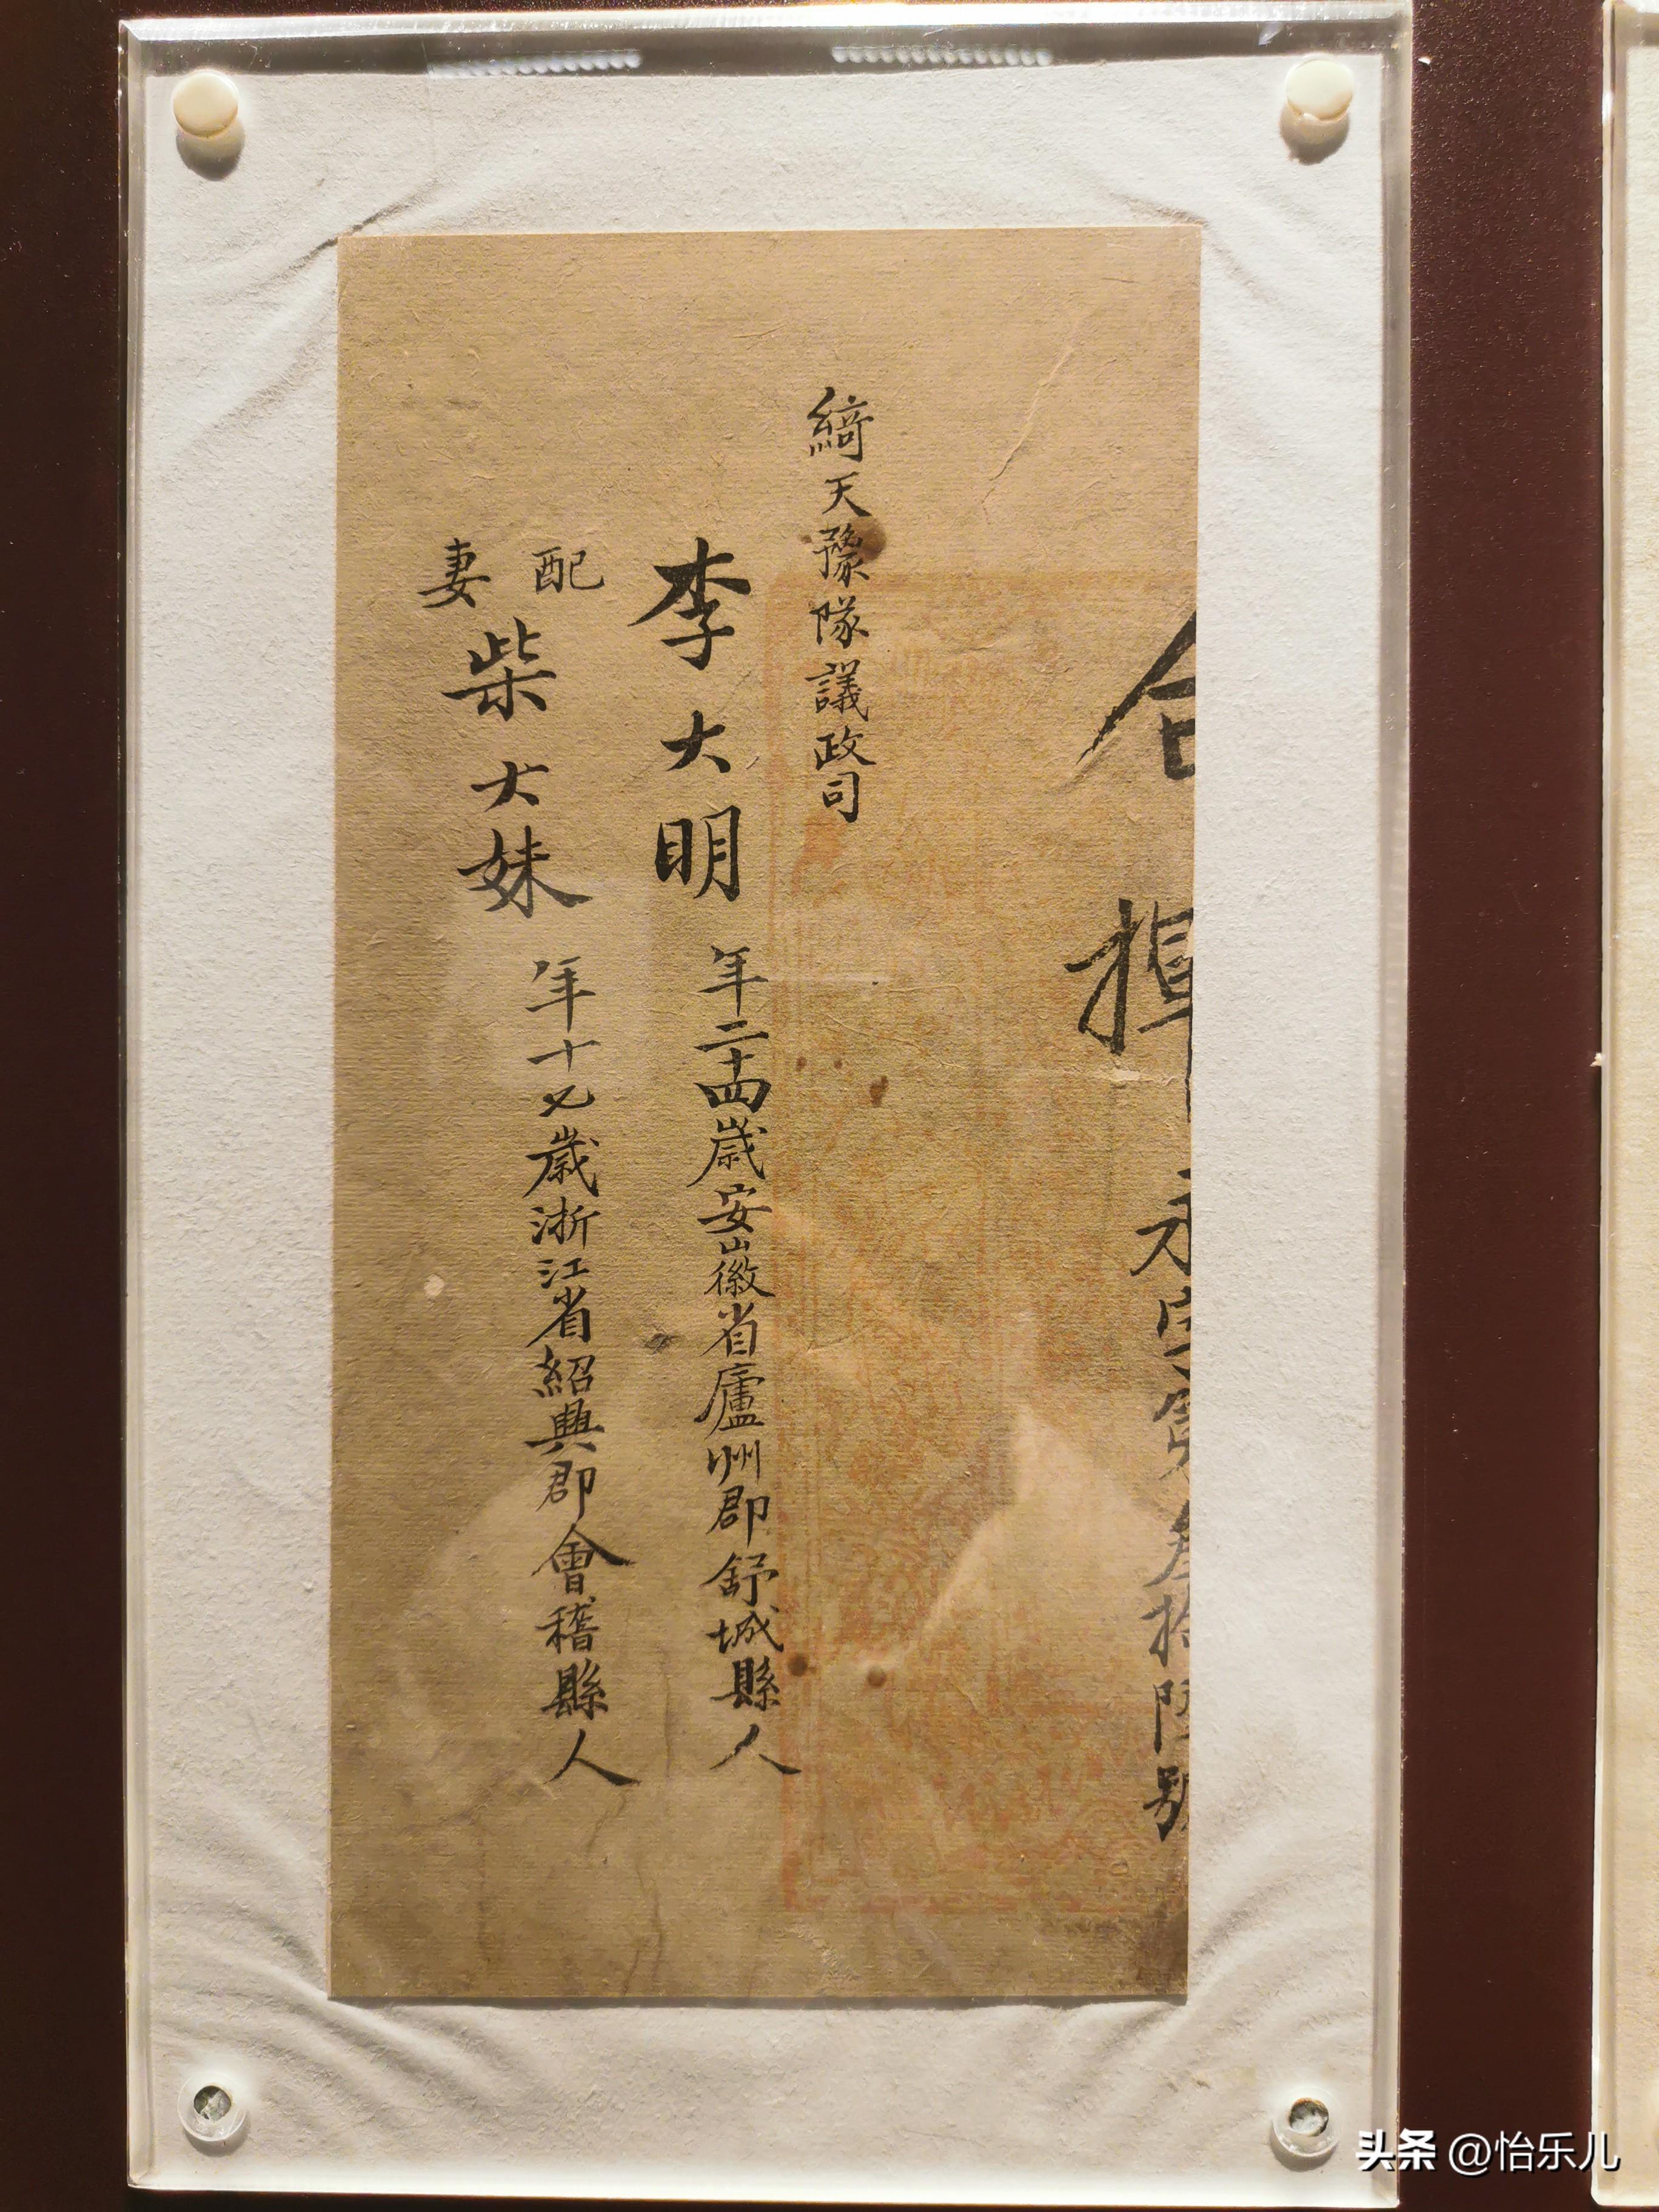 合揮 永叁拾陸號
綺天豫隊議政司
李大明年二十四歲安徽省廬州郡舒城縣人
配妻柴大妹年十七歲浙江省紹興郡會稽縣人
头条 @怡乐儿